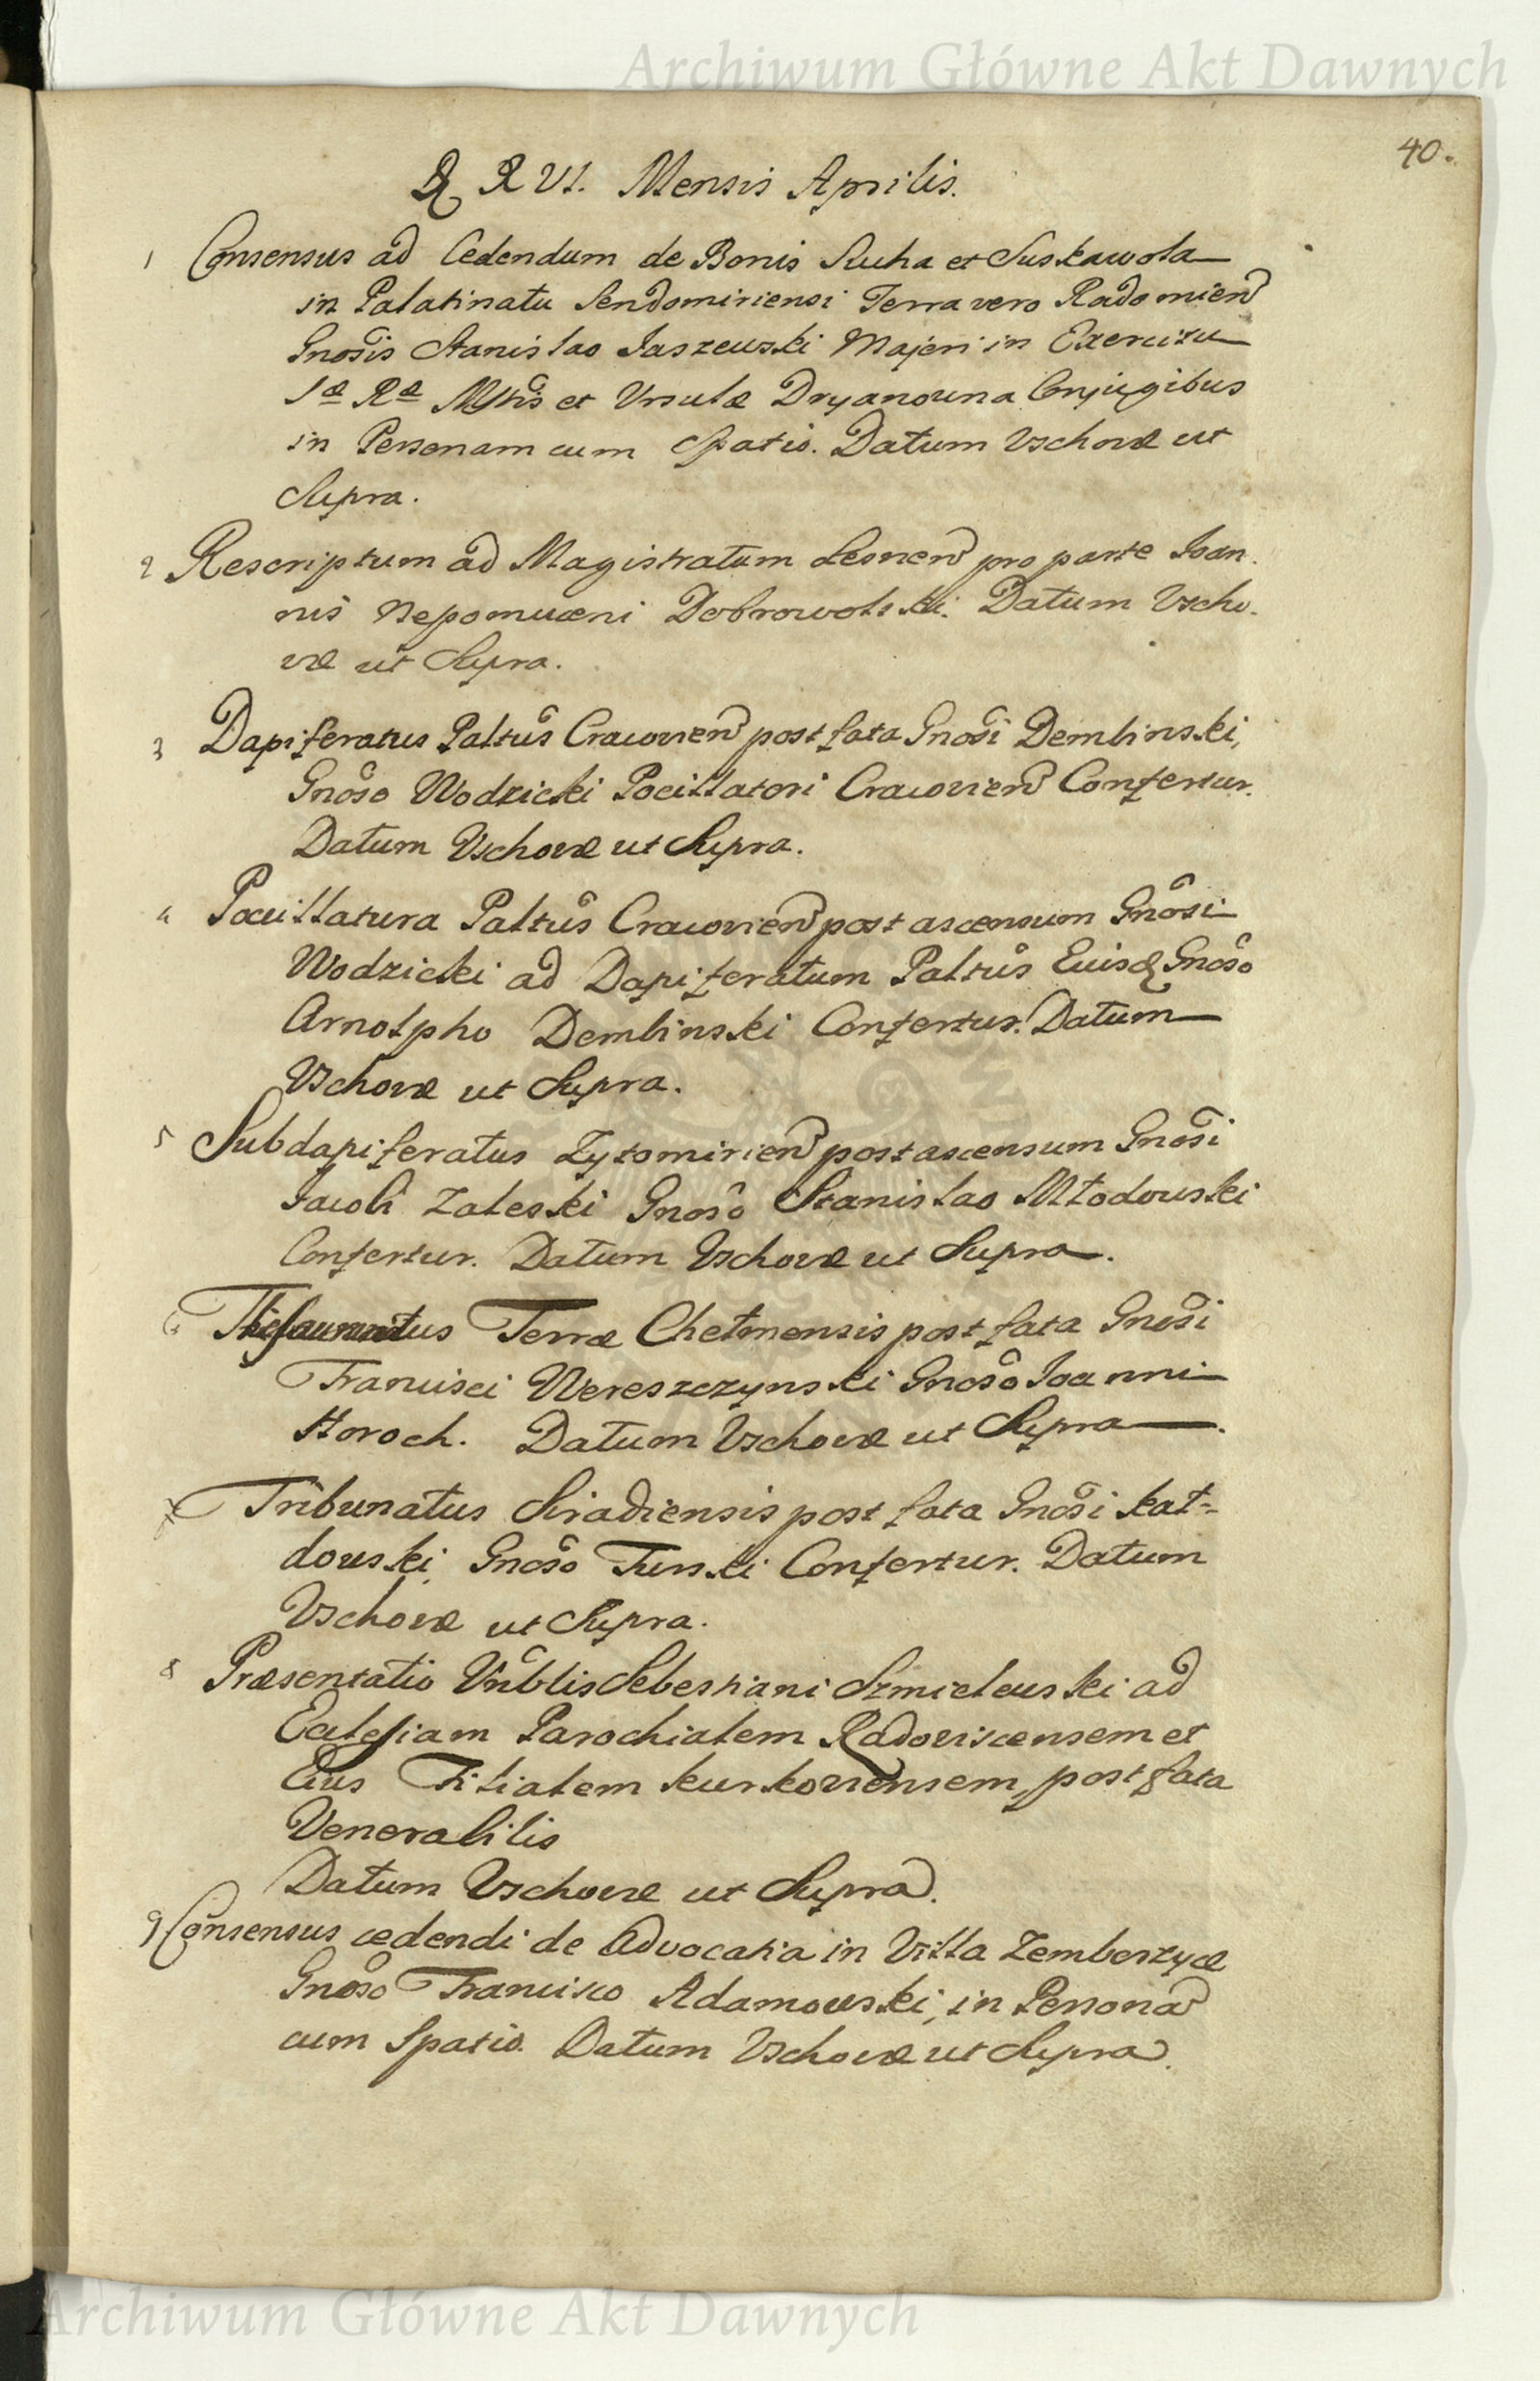 Archiwum Główne Akt Dawnych
40.
XVI. Mensis Aprilis.
1 Consensus ad Cedendum de Bonis Ruha et Suskawola
in Palatinatu Sendomiriensi Terra vero Radomien
Gnosis Stanislao Jaszewski Majori in Exercitu
Sæ Ræ Mttis et Ursulæ Dryanowna Conjugibus
in Personam cum Spatio. Datum Vschovæ ut
Supra.
2 Rescriptum ad Magistratum Lesnen pro parte Ioan.
nis Nepomuceni Dobrowolski. Datum Vscho.
væ ut Supra.
3 Dapiferatus Palttus Cracovien post fata Gnosi Dembinski,
Gnoso Wodzicki Pocillatori Cracovien Confertur.
Datum Vschovæ ut Supra.
4 Pocillatura Palttus Cracovien post ascensum Gnosi
Wodzicki ad Dapiferatum Palttus Euisdq Gnoso
Arnolpho Dembinski Confertur. Datum
Vschovæ ut Supra.
5 Subdapiferatus Zytomirien post ascensum Gnosi
Jacobi Zaleski Gnoso Stanislao Młodowski
Confertur. Datum Vschovæ ut Supra.
6 Thesauratus Terræ Chełmensis post fata Gnosi
Francisci Wereszczynski Gnoso Joanni
Horoch. Datum Vschovæ ut Supra.
7 Tribunatus Siradiensis post fata Gnosi Kał-
dowski, Gnoso Turski Confertur. Datum
Vschovæ ut Supra.
8 Præsentatio Vnblis Sebestiani Szmielewski ad
Ecclesiam Parochialem Radoviscensem et
Eius Filialem Kurkoviensem, post fata
Venerabilis
Datum Vschovæ ut Supra.
9 Consensus cedendi de Advocatia in Villa Zemborzyce
Gnoso Francisco Adamowski, in Persona
cum Spatio. Datum Vschovæ ut Supra.
Archiwum Główne Akt Dawnych